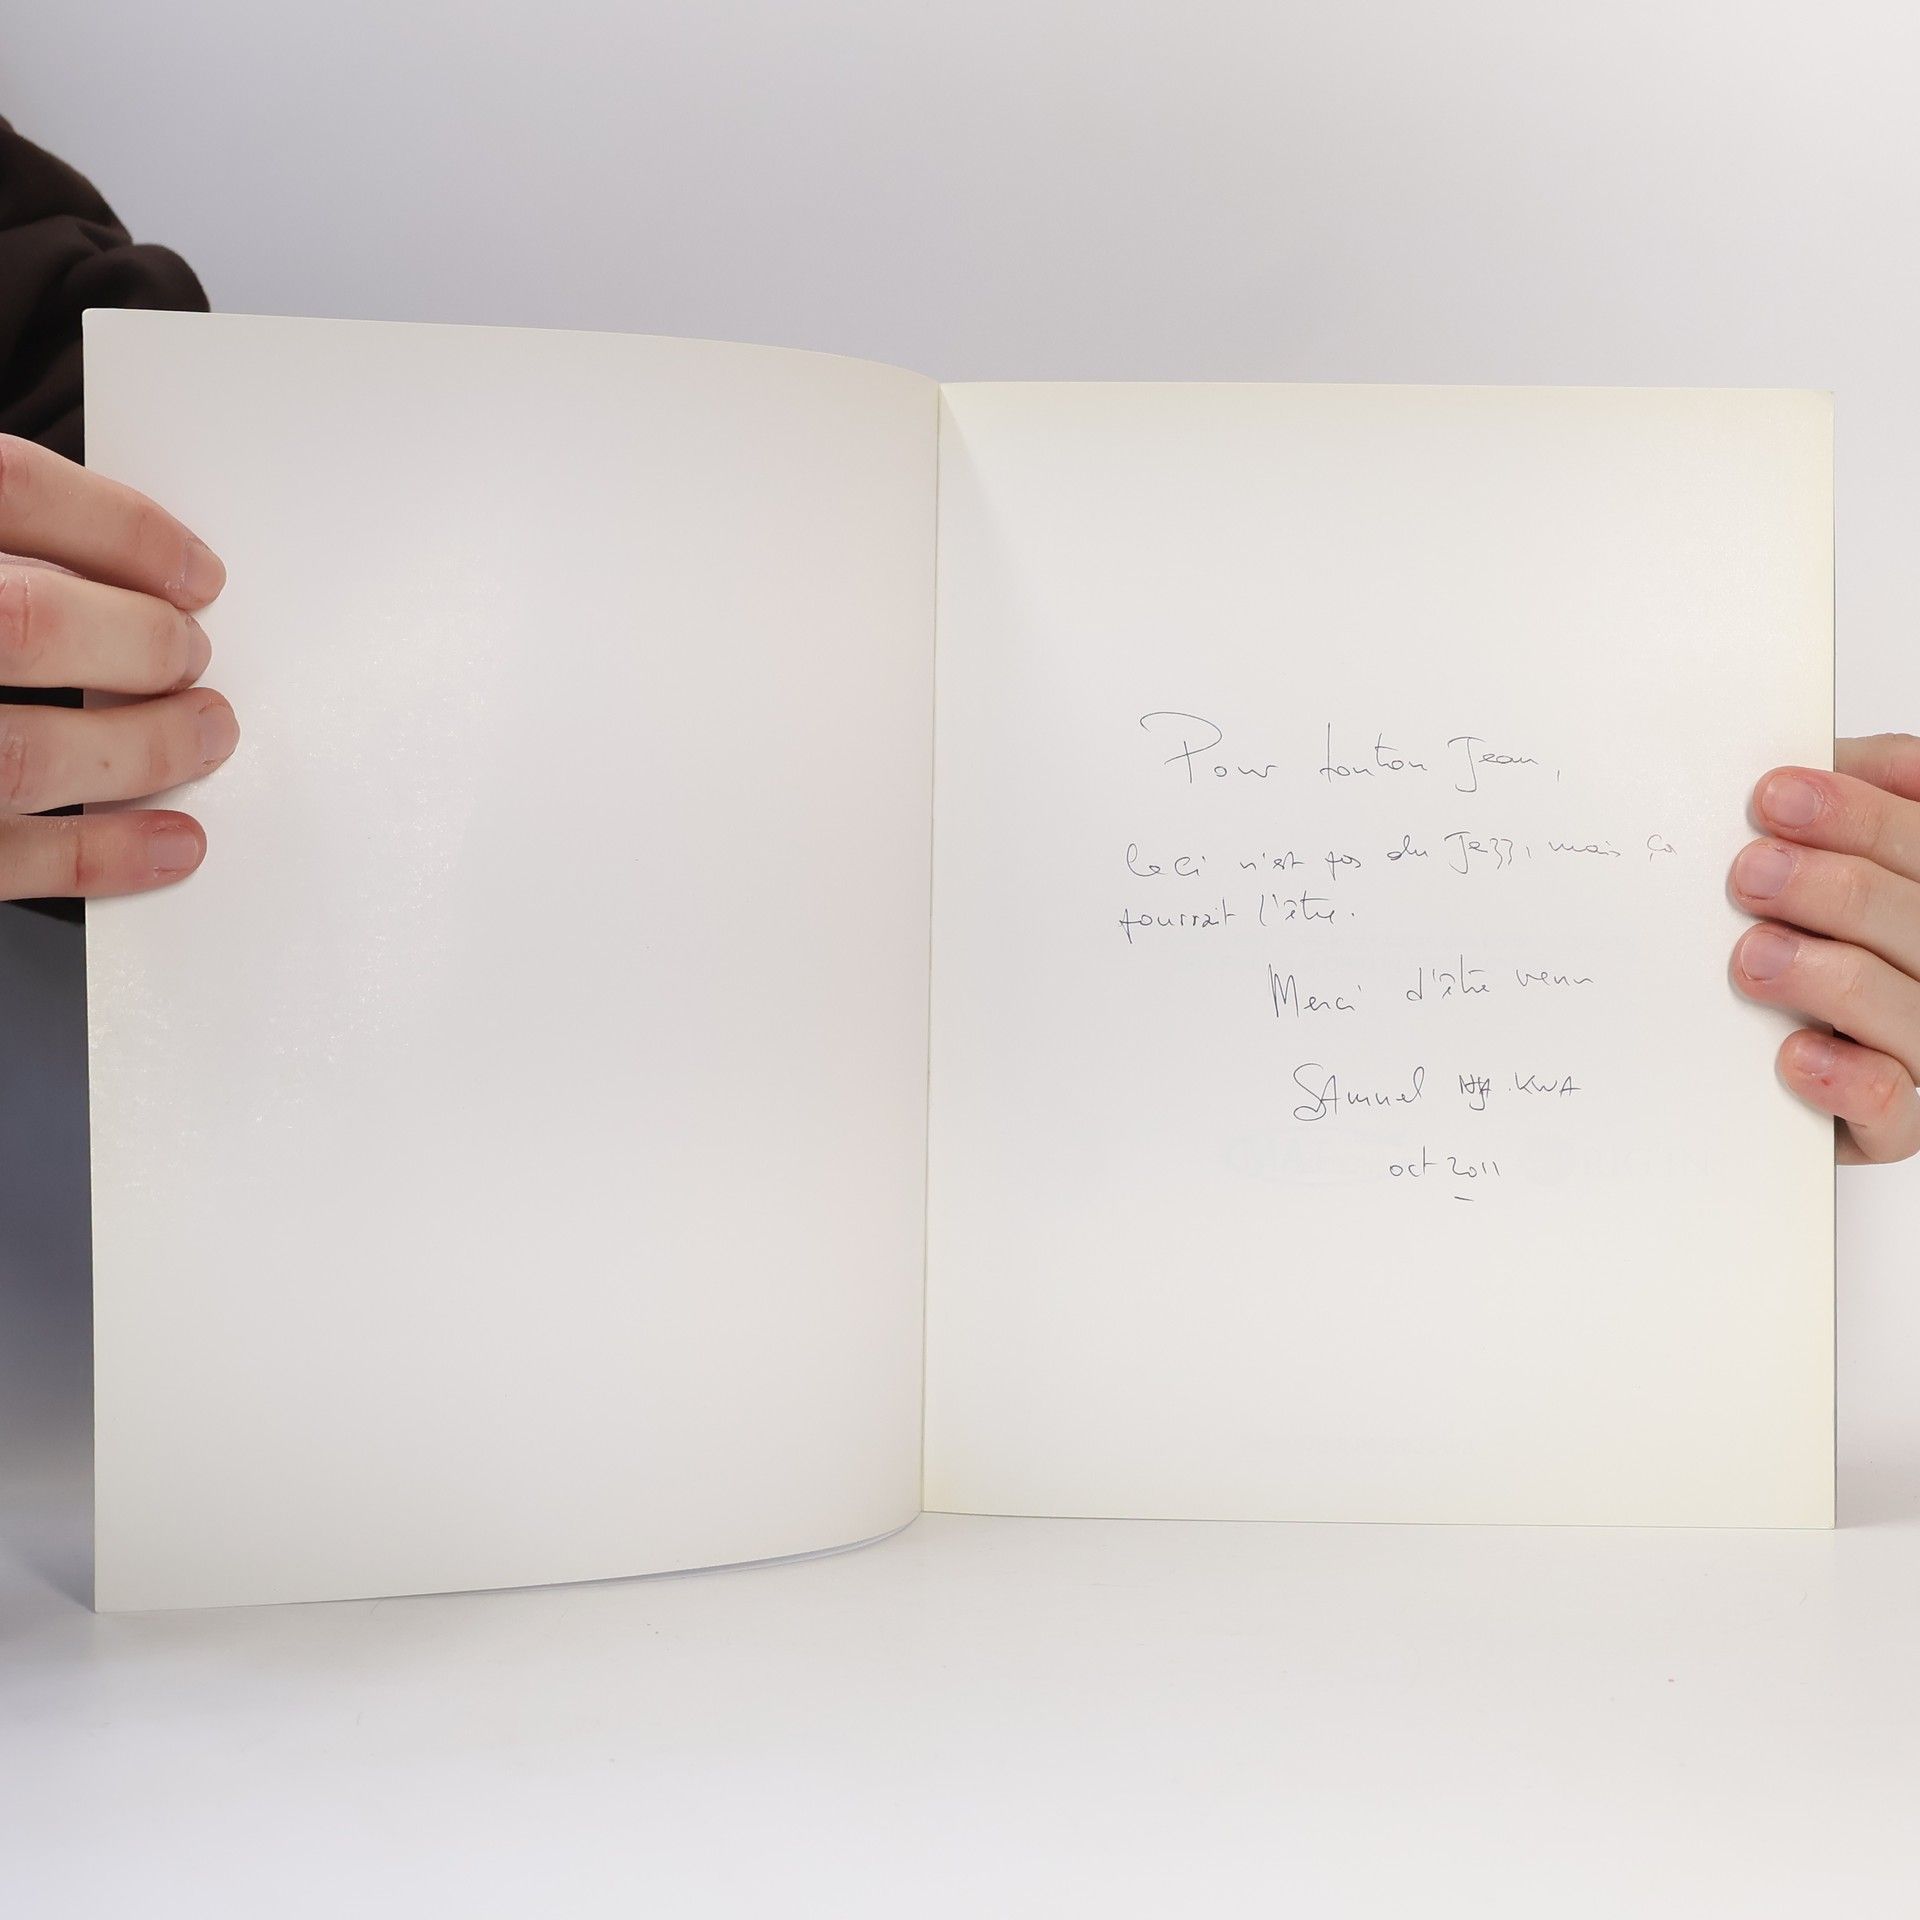 Pour tonton Jean,
Ceci n'est pas du Jazz, mais ça
pourrait l'être.
Merci d'être venu
Samuel KWA
oct 2011